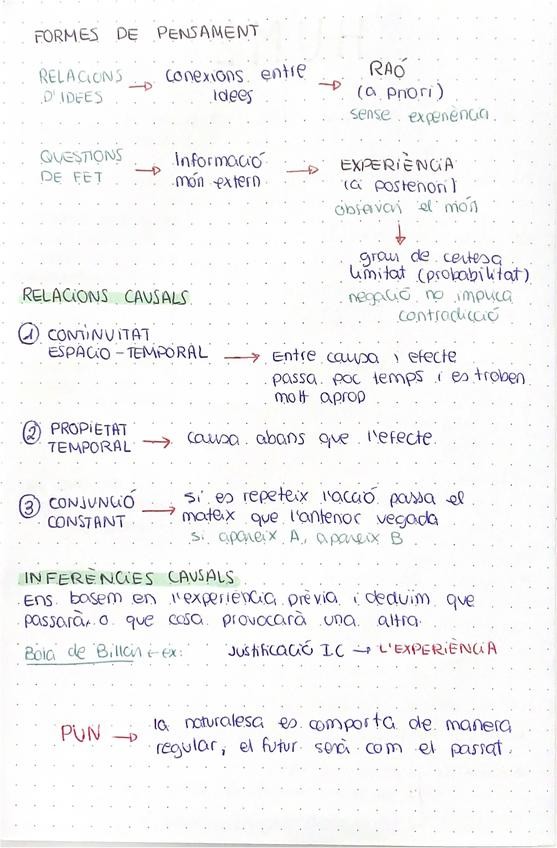 FORMES DE PENSAMENT
RELACIONS
D'IDEES → conexions entre
idees → RAÓ
(a priori)
sense experiència
QÜESTIONS
DE FET → Informació
món extern → EXPERIÈNCIA
(a posteriori)
observar el món
↓
grau de certesa
limitat (probabilitat)
negació no implica
contradicció
RELACIONS CAUSALS
① CONTINUITAT
ESPACIO-TEMPORAL → Entre causa i efecte
passa poc temps i es troben
molt aprop
② PROPIETAT
TEMPORAL → causa abans que l'efecte
③ CONJUNCIÓ
CONSTANT → si es repeteix l'acció passa el
mateix que l'anterior vegada
si apareix A, apareix B
INFERÈNCIES CAUSALS
Ens basem en l'experiència prèvia i deduim que
passarà o que cosa provocarà una altra.
Bola de Billar ex: Justificació I.C → L'EXPERIÈNCIA
PUN → la naturalesa es comporta de manera
regular, el futur serà com el passat.